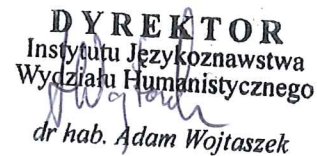 DYREKTOR
Instytutu Językoznawstwa
Wydziału Humanistycznego
dr hab. Adam Wojtaszek